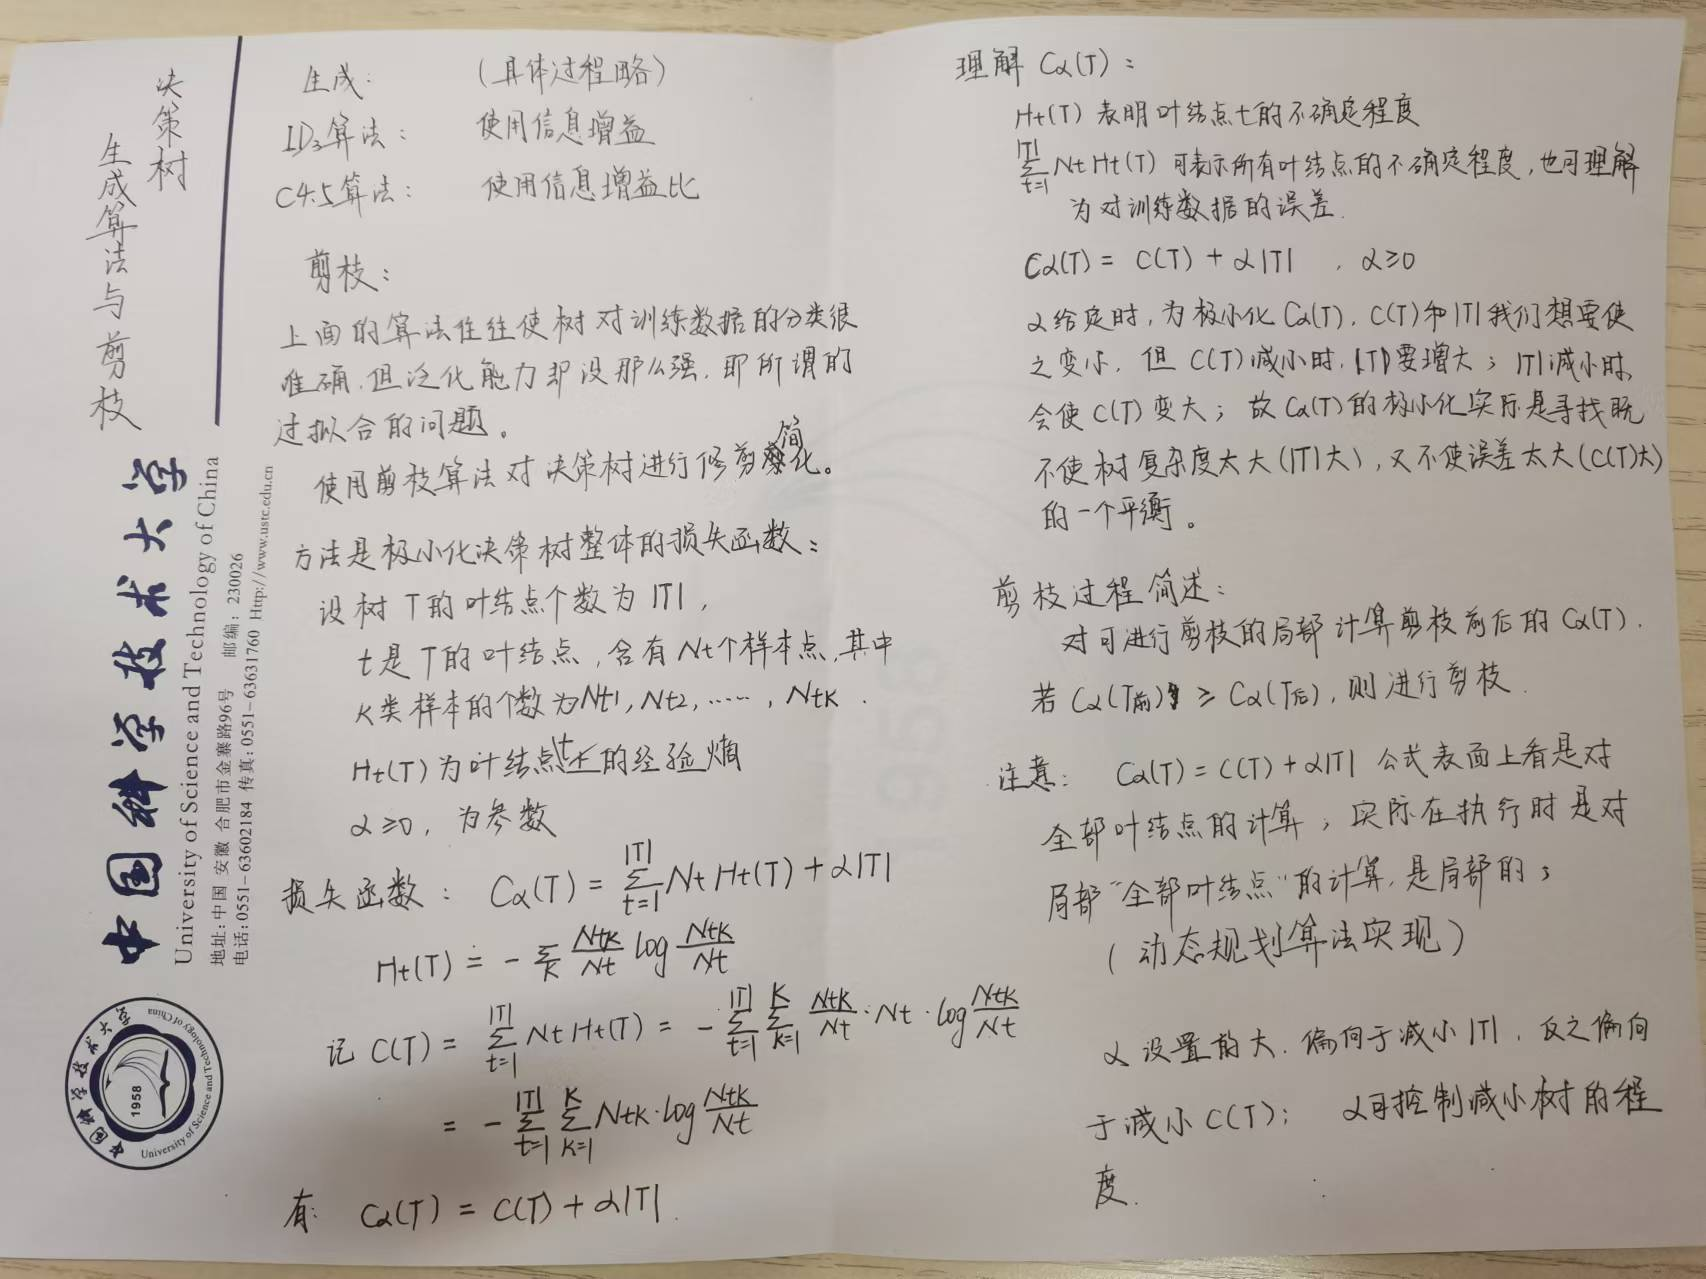 决策树
生成算法与剪枝
中国科学技术大学
University of Science and Technology of China
地址:中国 安徽 合肥市金寨路96号 邮编:230026
电话:0551-63602184 传真:0551-63631760 Http://www.ustc.edu.cn
中国科学技术大学
1958
University of Science and Technology of China
生成: (具体过程略)
ID3算法: 使用信息增益
C4.5算法: 使用信息增益比
剪枝:
上面的算法往往使树对训练数据的分类很
准确,但泛化能力却没那么强,即所谓的
过拟合的问题。
使用剪枝算法对决策树进行修剪简化。
方法是极小化决策树整体的损失函数:
设树 T 的叶结点个数为 |T|,
t是 T的叶结点,含有 Nt个样本点,其中
K类样本的个数为Nt1, Nt2, ……, NtK.
Ht(T)为叶结点t上的经验熵
α≥0, 为参数
损失函数: Cα(T) = Σ_{t=1}^{|T|} Nt Ht(T) + α|T|
Ht(T) = - Σ_K Ntk/Nt log Ntk/Nt
记 C(T) = Σ_{t=1}^{|T|} Nt Ht(T) = - Σ_{t=1}^{|T|} Σ_{k=1}^{K} Ntk/Nt · Nt · log Ntk/Nt
= - Σ_{t=1}^{|T|} Σ_{k=1}^{K} Ntk · log Ntk/Nt
有: Cα(T) = C(T) + α|T|.
理解 Cα(T):
Ht(T) 表明叶结点t的不确定程度
Σ_{t=1}^{|T|} Nt Ht(T) 可表示所有叶结点的不确定程度,也可理解
为对训练数据的误差.
Cα(T) = C(T) + α|T| , α≥0
α给定时,为极小化 Cα(T), C(T)和|T|我们想要使
之变小, 但 C(T)减小时,|T|要增大; |T|减小时,
会使 C(T) 变大; 故 Cα(T)的极小化实际是寻找既
不使树复杂度太大(|T|大),又不使误差太大(C(T)大)
的一个平衡。
剪枝过程简述:
对可进行剪枝的局部计算剪枝前后的 Cα(T).
若 Cα(T前) ≥ Cα(T后), 则进行剪枝.
注意: Cα(T) = C(T) + α|T| 公式表面上看是对
全部叶结点的计算; 实际在执行时是对
局部“全部叶结点”的计算,是局部的;
(动态规划算法实现)
α 设置的大, 偏向于减小 |T|, 反之偏向
于减小 C(T); α可控制减小树的程
度.
1958